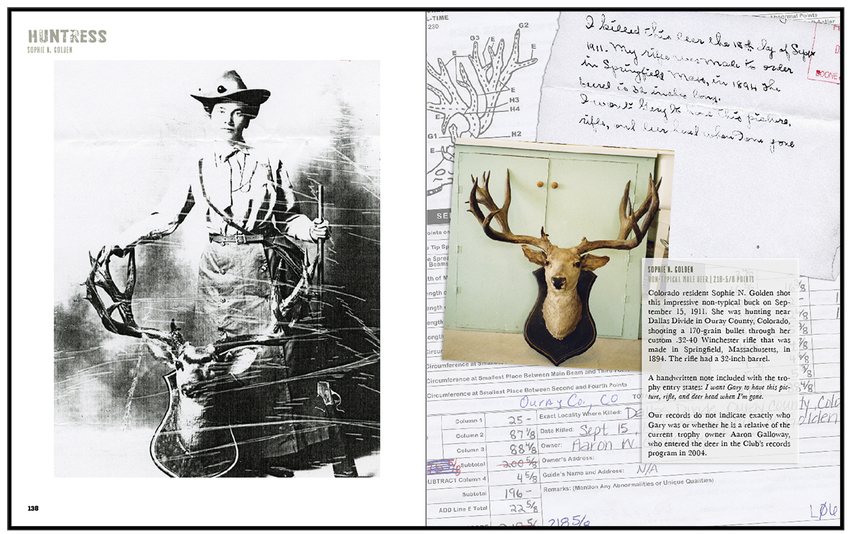 HUNTRESS
SOPHIE N. GOLDEN
138
L-TIME
230
Abnormal Points
I killed this deer the 15th day of Sept
1911. My rifle was made to order
in Springfield Mass, in 1894 the
barrel is 32 inches long.
I want Gary to have this picture,
rifle, and deer head when I'm gone
BOONE
G2
G3
E
E
E
H3
H4
G1
H2
SOPHIE N. GOLDEN
NON-TYPICAL MULE DEER | 218-5/8 POINTS
Colorado resident Sophie N. Golden shot
this impressive non-typical buck on Sep-
tember 15, 1911. She was hunting near
Dallas Divide in Ouray County, Colorado,
shooting a 170-grain bullet through her
custom .32-40 Winchester rifle that was
made in Springfield, Massachusetts, in
1894. The rifle had a 32-inch barrel.
A handwritten note included with the tro-
phy entry states: I want Gary to have this pic-
ture, rifle, and deer head when I'm gone.
Our records do not indicate exactly who
Gary was or whether he is a relative of the
current trophy owner Aaron Galloway,
who entered the deer in the Club's records
program in 2004.
Circumference at Smallest Place Between Main Beam and Third
Circumference at Smallest Place Between Second and Fourth Points
Ouray Co., CO
Column 1 25 - Exact Locality Where Killed: Da
Column 2 87 7/8 Date Killed: Sept 15,
Column 3 88 4/8 Owner: Aaron W.
Subtotal 200 5/8 Owner's Address:
SUBTRACT Column 4 4 5/8 Guide's Name and Address: N/A
Subtotal 196 - Remarks: (Mention Any Abnormalities or Unique Qualities)
ADD Line E Total 22 5/8
218 5/8